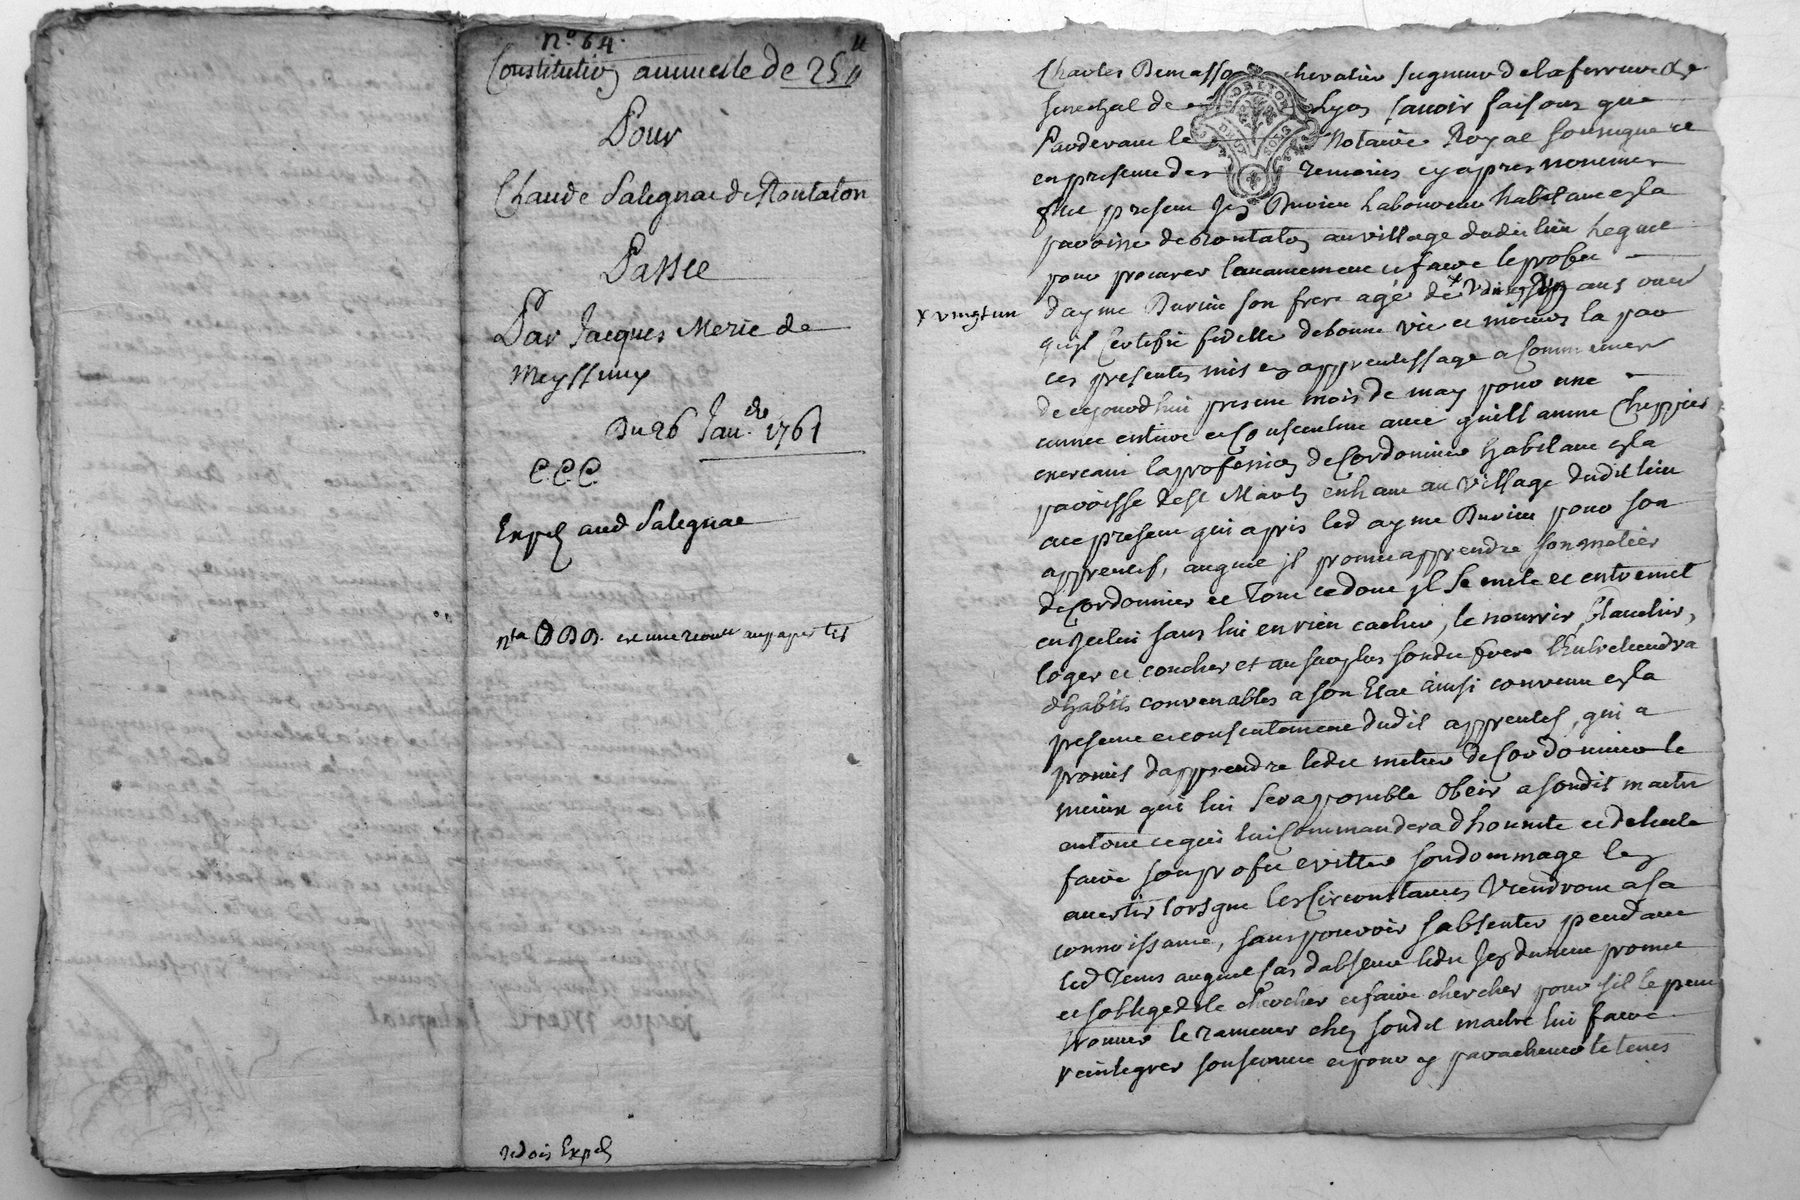 n.o 64.
Constitution annuelle de 25 ll
Pour
Claude Salegnac de Montaton
Passée
Par Jacques Merie de
Meyssimy
Du 26 Janv. 1761
C.C.C.
Exped aud Salegnac
nta
redois Exped
Charles Demasso chevalier seigneur de la ferriere &
senechal de Lyon savoir faisons que
Pardevant le Notaire Royal soussigné et
en presence des temoins cy apres nommes
fut present Jean Laboureur habitant en la
paroisse de au village dudit lieu lequel
pour procurer l'avancement et faire le profit
dayme Durieu son frere agé de x ans ouer
x vingt un
quil certifie fidelle de bonne vie et moeurs la par
ces presentes mis en apprentissage a commencer
de ce jourdhui present mois de may pour une
annee entiere et consecutive avec guillaume Chappuis
exercant la profession de Cordonnier habitant en la
paroisse de st Martin enhaut au village dudit lieu
ace present qui a pris led ayme Durieu pour son
apprentif, auquel il promet apprendre son metier
de Cordonnier et tout ce dont il se mele et entremet
en icelui sans lui en rien cacher, le nourrir, blanchir,
loger et coucher et au surplus sondit frere lentretiendra
dhabits convenables a son Etat ainsi convenu en la
presence et consentement dudit apprentif, qui a
promis dapprendre ledit metier de Cordonnier le
mieux qui lui sera possible obeir a sondit maitre
en tout ce qui lui commandera dhonnete et de licite
faire son profit eviter son dommage len
avertir lorsque les circonstances viendront a sa
connoissance, sans pouvoir sabsenter pendant
led tems auquel cas dabsence ledit Jean durieu promet
et soblige de le chercher et faire chercher pour sil le peut
trouver le ramener chez sondit maitre lui faire
reintegrer son service et pour y parachever le tems